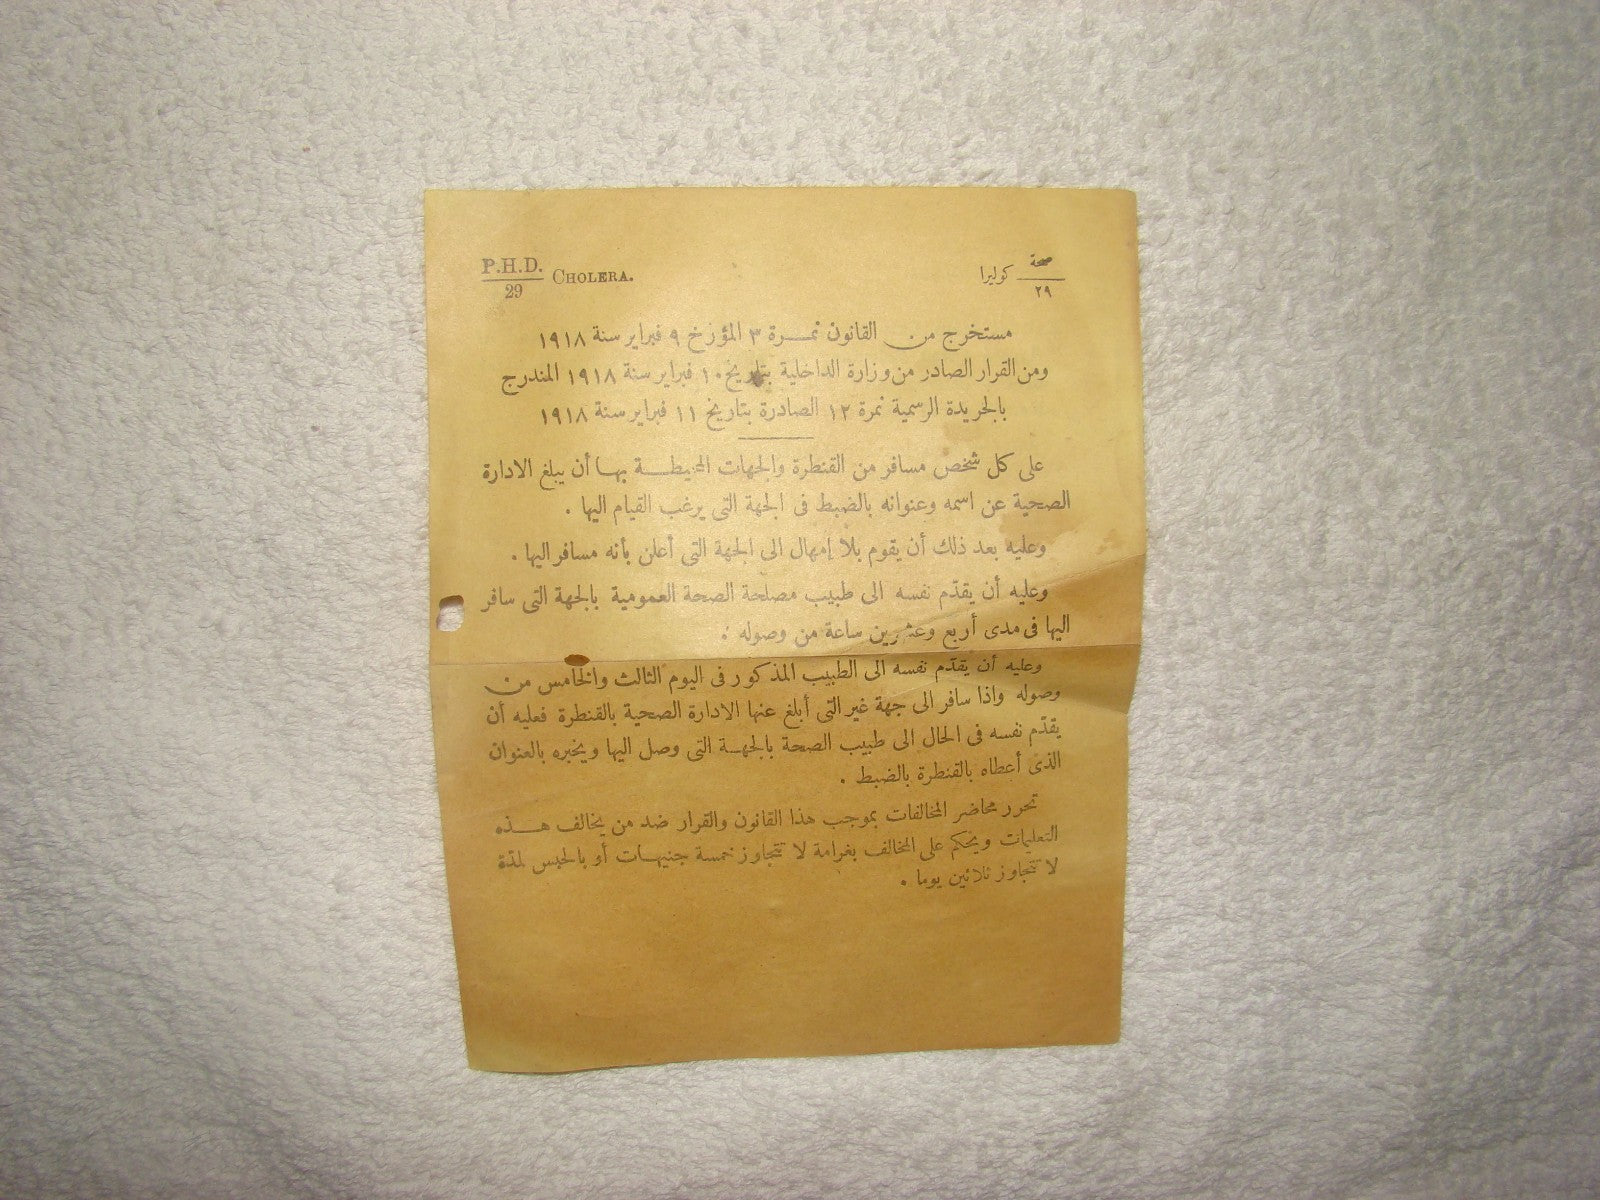 P.H.D. CHOLERA.
29
صحة كوليرا
٢٩
مستخرج من القانون نمرة ٣ المؤرخ ٩ فبراير سنة ١٩١٨
ومن القرار الصادر من وزارة الداخلية بتاريخ ١٠ فبراير سنة ١٩١٨ المندرج
بالجريدة الرسمية نمرة ١٢ الصادرة بتاريخ ١١ فبراير سنة ١٩١٨
على كل شخص مسافر من القنطرة والجهات المحيطة بها أن يبلغ الادارة
الصحية عن اسمه وعنوانه بالضبط فى الجهة التى يرغب القيام اليها .
وعليه بعد ذلك أن يقوم بلا إمهال الى الجهة التى أعلن بأنه مسافر اليها .
وعليه أن يقدّم نفسه الى طبيب مصلحة الصحة العمومية بالجهة التى سافر
اليها فى مدى أربع وعشرين ساعة من وصوله .
وعليه أن يقدّم نفسه الى الطبيب المذكور فى اليوم الثالث والخامس من
وصوله واذا سافر الى جهة غير التى أبلغ عنها الادارة الصحية بالقنطرة فعليه أن
يقدّم نفسه فى الحال الى طبيب الصحة بالجهة التى وصل اليها ويخبره بالعنوان
الذى أعطاه بالقنطرة بالضبط .
تحرر محاضر المخالفات بموجب هذا القانون والقرار ضد من يخالف هذه
التعليمات ويحكم على المخالف بغرامة لا تتجاوز خمسة جنيهات أو بالحبس لمدّة
لا تتجاوز ثلاثين يوما .